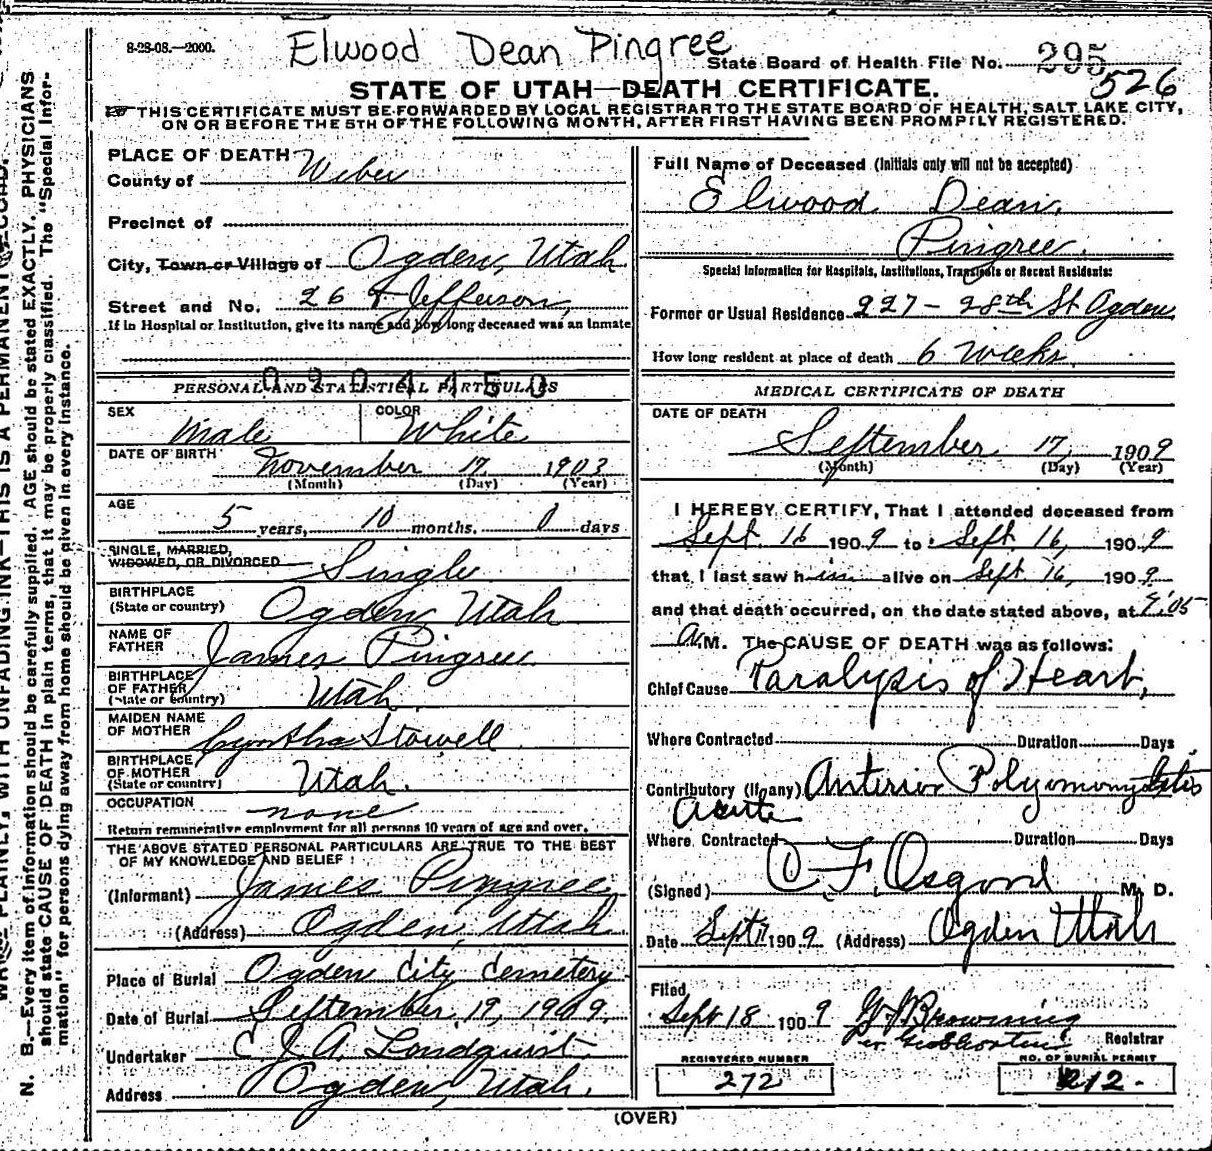 8-28-08.—2000.
Elwood Dean Pingree
State Board of Health File No. 295
526
STATE OF UTAH—DEATH CERTIFICATE.
THIS CERTIFICATE MUST BE FORWARDED BY LOCAL REGISTRAR TO THE STATE BOARD OF HEALTH, SALT LAKE CITY,
ON OR BEFORE THE 5TH OF THE FOLLOWING MONTH, AFTER FIRST HAVING BEEN PROMPTLY REGISTERED.
PLACE OF DEATH
County of Weber
Precinct of
City, Town or Village of Ogden, Utah
Street and No. 26 & Jefferson,
If in Hospital or Institution, give its name and how long deceased was an inmate
0904450
PERSONAL AND STATISTICAL PARTICULARS
SEX Male COLOR White
DATE OF BIRTH November 17 1903
(Month) (Day) (Year)
AGE
5 years, 10 months. 0 days
SINGLE, MARRIED,
WIDOWED, OR DIVORCED Single
BIRTHPLACE
(State or country) Ogden, Utah
NAME OF
FATHER James Pingree
BIRTHPLACE
OF FATHER
(State or Country) Utah
MAIDEN NAME
OF MOTHER Cyntha Stowell
BIRTHPLACE
OF MOTHER
(State or country) Utah.
OCCUPATION none
Return remunerative employment for all persons 10 years of age and over.
THE ABOVE STATED PERSONAL PARTICULARS ARE TRUE TO THE BEST
OF MY KNOWLEDGE AND BELIEF:
(Informant) James Pingree
(Address) Ogden, Utah
Place of Burial Ogden City Cemetery
Date of Burial September 19, 1909.
Undertaker C. J. A. Lindquist.
Address Ogden, Utah.
Full Name of Deceased (Initials only will not be accepted)
Elwood Dean
Pingree.
Special Information for Hospitals, Institutions, Transients or Recent Residents:
Former or Usual Residence 227 - 28th St Ogden
How long resident at place of death 6 weeks
MEDICAL CERTIFICATE OF DEATH
DATE OF DEATH
September 17, 1909
(Month) (Day) (Year)
I HEREBY CERTIFY, That I attended deceased from
Sept. 16 1909 to Sept. 16, 1909
that I last saw him alive on Sept. 16, 1909
and that death occurred, on the date stated above, at
A.M. The CAUSE OF DEATH was as follows:
Chief Cause Paralysis of Heart,
Where Contracted Duration Days
Contributory (if any) Anterior
Acute
Where Contracted Duration Days
(Signed) O F. Osgood M. D.
Date Sept 17 1909 (Address) Ogden Utah
Filed
Sept 18 1909 Browning
Registrar
REGISTERED NUMBER
272
NO. OF BURIAL PERMIT
212.
(OVER)
N. B.—Every item of information should be carefully supplied. AGE should be stated EXACTLY. PHYSICIANS
should state CAUSE OF DEATH in plain terms, that it may be properly classified. The "Special Infor-
mation" for persons dying away from home should be given in every instance.
PLAINLY, WITH UNFADING INK—THIS IS A PERMANENT RECORD.